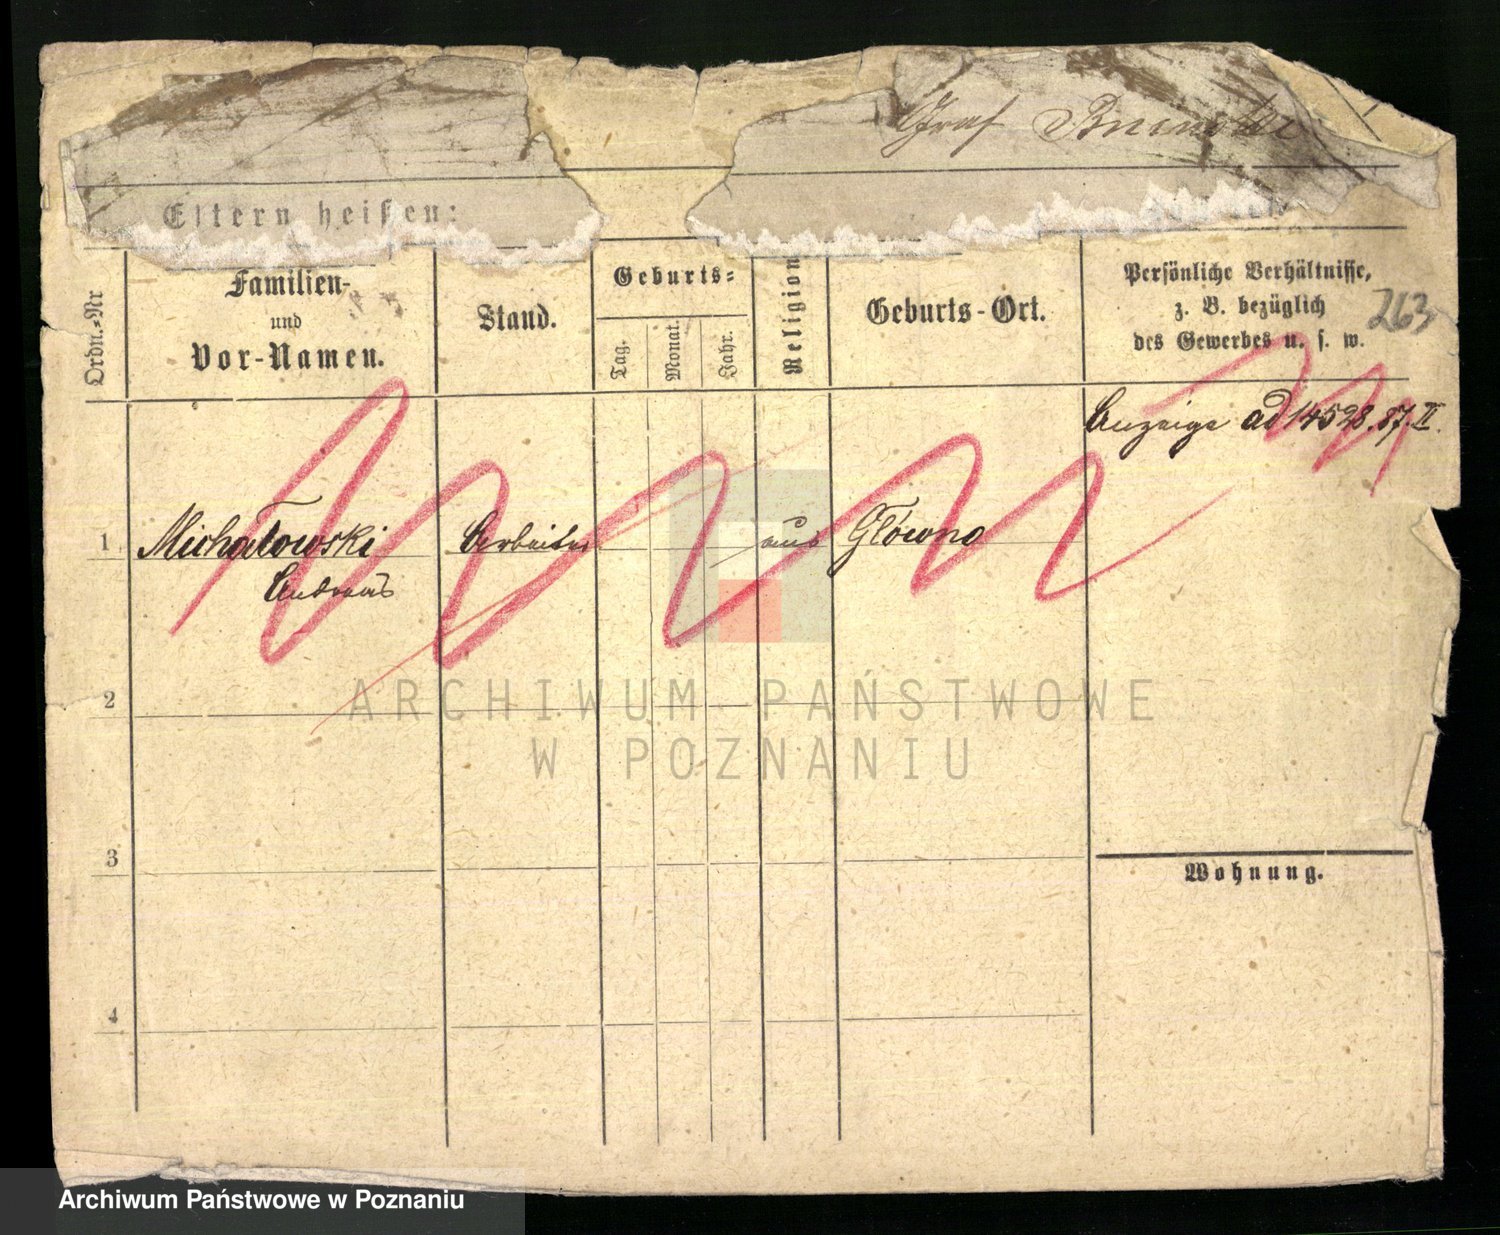 Graf Bninski
Eltern heißen:
Ordn.-Nr
Familien-
und
Vor-Namen.
Stand.
Geburts-
Tag.
Monat.
Jahr.
Religion
Geburts-Ort.
Persönliche Verhältnisse,
z. B. bezüglich
des Gewerbes u. s. w.
263
Anzeige ad 14528.87.II.
1 Michałowski Arbeiter aus Główno
Andreas
2
ARCHIWUM PAŃSTWOWE
W POZNANIU
3
Wohnung.
4
Archiwum Państwowe w Poznaniu